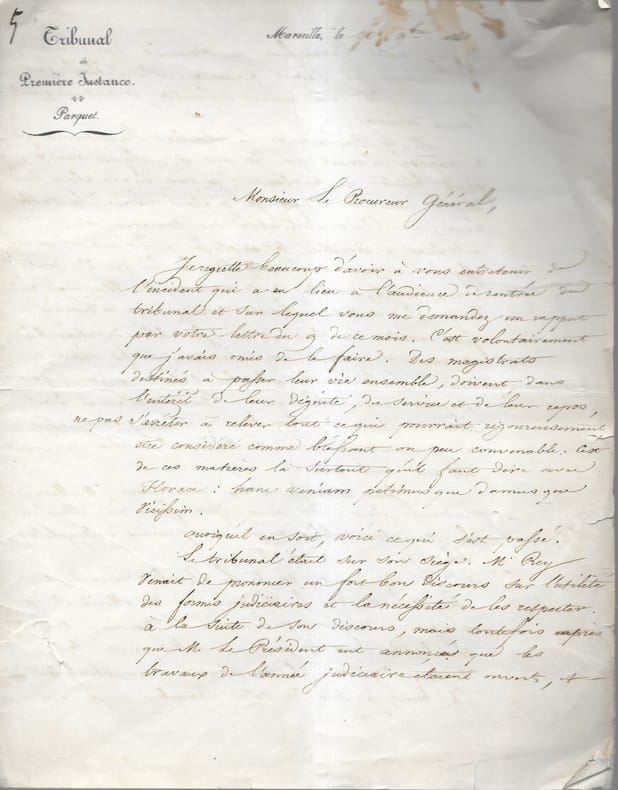 5
Tribunal
de
Première Instance.
Parquet.
Marseille, le
Monsieur Le Procureur Général,
Je regrette beaucoup d'avoir à vous entretenir de
l'incident qui a eu lieu à l'audience de rentrée du
tribunal et sur lequel vous me demandez un rapport
par votre lettre du 9 de ce mois. C'est volontairement
que j'avais omis de le faire. Des magistrats
destinés à passer leur vie ensemble, doivent dans
l'intérêt de leur dignité, de service et de leur repos,
ne pas s'arrêter à relever tout ce qui pourrait rigoureusement
être considéré comme blessant ou peu convenable. C'est
de ces matières là surtout qu'il faut dire avec
Horace : hanc veniam petimus que damus que
vicissim.
quoiqu'il en soit, voici ce qui s'est passé.
Le tribunal était sur son siège. M. Rey
venait de prononcer un fort bon discours sur l'utilité
des formes judiciaires et la nécessité de les respecter.
à la suite de son discours, mais toutefois après
que M. Le Président eut annoncé que les
travaux de l'année judiciaire étaient ouverts,